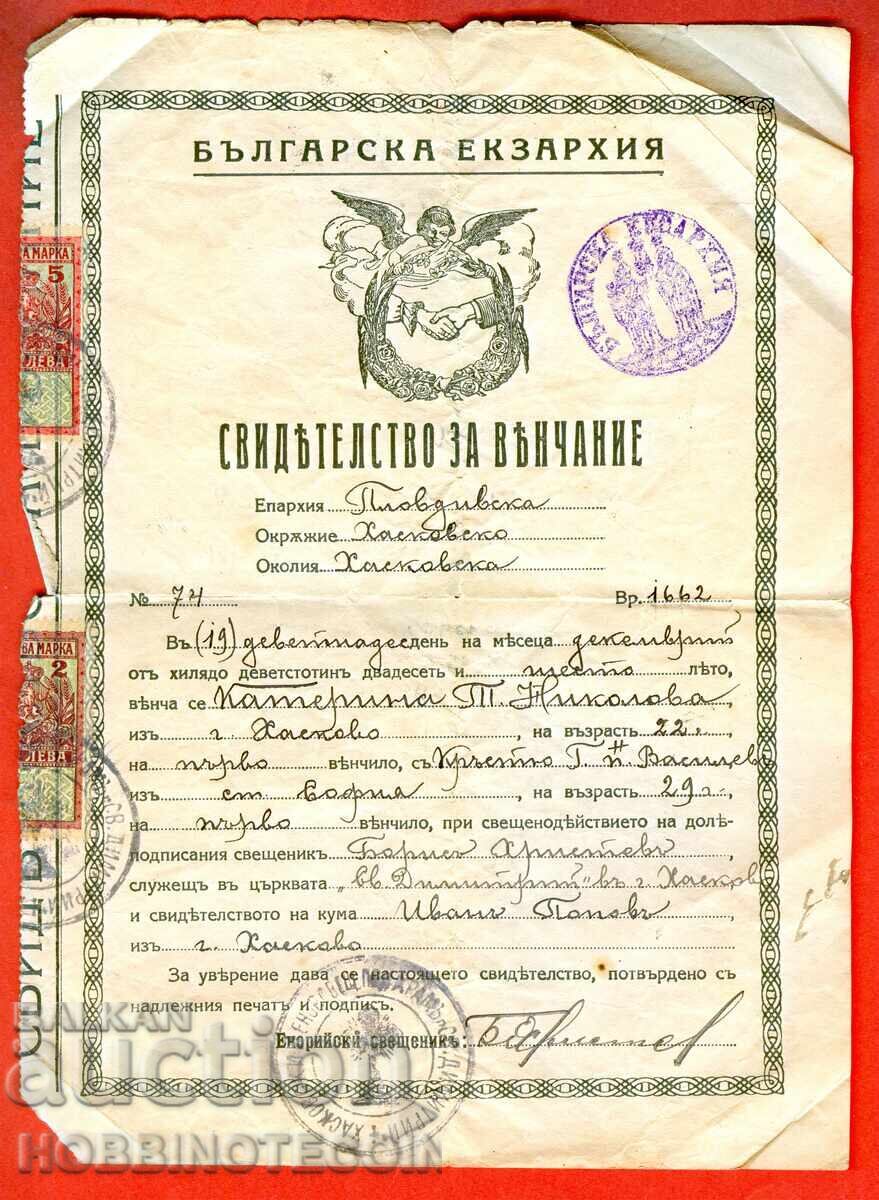 БЪЛГАРСКА ЕКЗАРХИЯ
БЪЛГАРСКА ЕКЗАРХИЯ
СВИДѢТЕЛСТВО ЗА ВѢНЧАНИЕ
Епархия Пловдивска
Окрѫжие Хасковско
Околия Хасковска
№ 74 Вр. 1662
Въ (19) деветнадесдень на мѣсеца декемврий
отъ хилядо деветстотин двадесеть и шесто лѣто,
вѣнча се Катерина Т. Николова
изъ г. Хасково, на възрасть 22 г.
на първо вѣнчило, съ Кръстю Г. п. Василевъ
изъ ст София, на възрасть 29 г.
на първо вѣнчило, при свещенодѣйствието на долѣ-
подписания свещеникъ Борисъ Христовъ,
служещъ въ църквата „Св. Димитрий" въ г. Хасково
и свидѣтелството на кума Иванъ Поповъ
изъ г. Хасково
За увѣрение дава се настоящето свидѣтелство, потвърдено съ
надлежния печатъ и подпись.
Енорийски свещеникъ: Б. Христов
ВА МАРКА
5
ЛЕВА
ВА МАРКА
2
ЛЕВА
СВ. ДИМИТРИЙ
ХРАМЪ СВ. ДИМИТРИЙ ХАСКОВО
BALKAN
auction
HOBBINOTECOIN